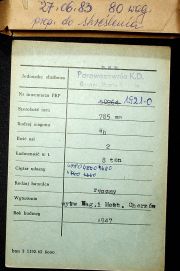 27.06.83 80 wag.
prop. do skreślenia
Jednostka służbowa Parowozownia K.D.
Nr inwentarza PKP 1521-0
Szerokość toru 785 mm
Rodzaj wagonu
Ilość osi 2
Ładowność w t 8 ton
Ciężar własny
Rodzaj hamulca ręczny
Wytwórnia Wag. i Most. Chorzów
Rok budowy 1947